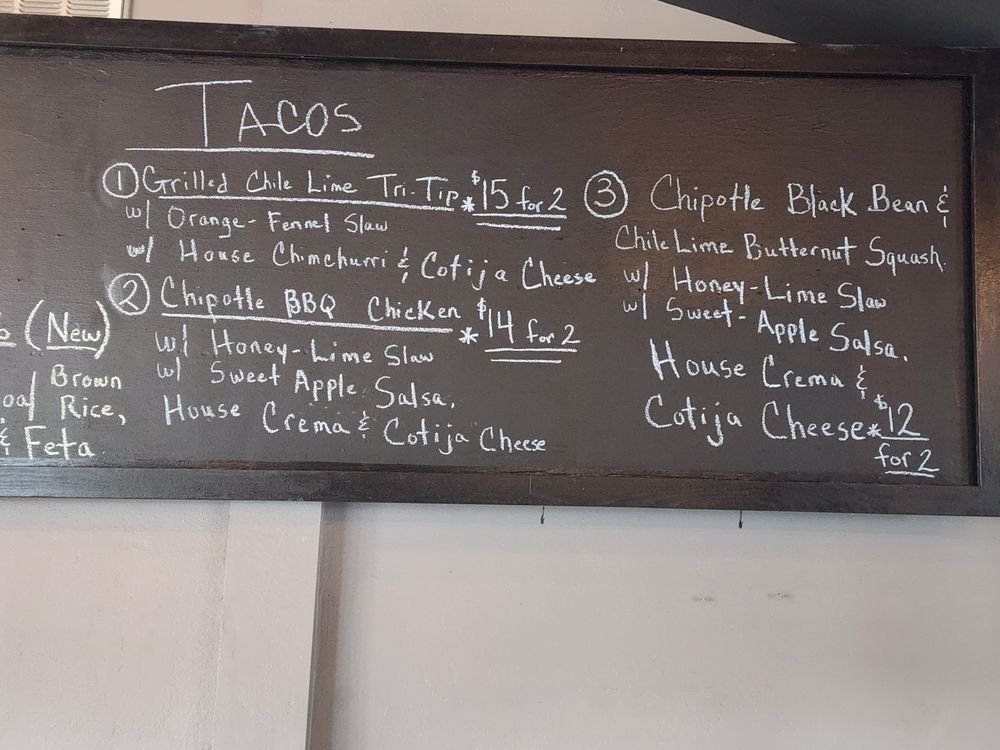 TACOS
① Grilled Chile Lime Tri-Tip * $15 for 2
w/ Orange-Fennel Slaw
w/ House Chimchurri & Cotija Cheese
② Chipotle BBQ Chicken * $14 for 2
w/ Honey-Lime Slaw
w/ Sweet Apple Salsa,
House Crema & Cotija Cheese
③ Chipotle Black Bean &
Chile Lime Butternut Squash
w/ Honey-Lime Slaw
w/ Sweet-Apple Salsa,
House Crema &
Cotija Cheese * $12
for 2
(New)
Brown
Rice,
& Feta